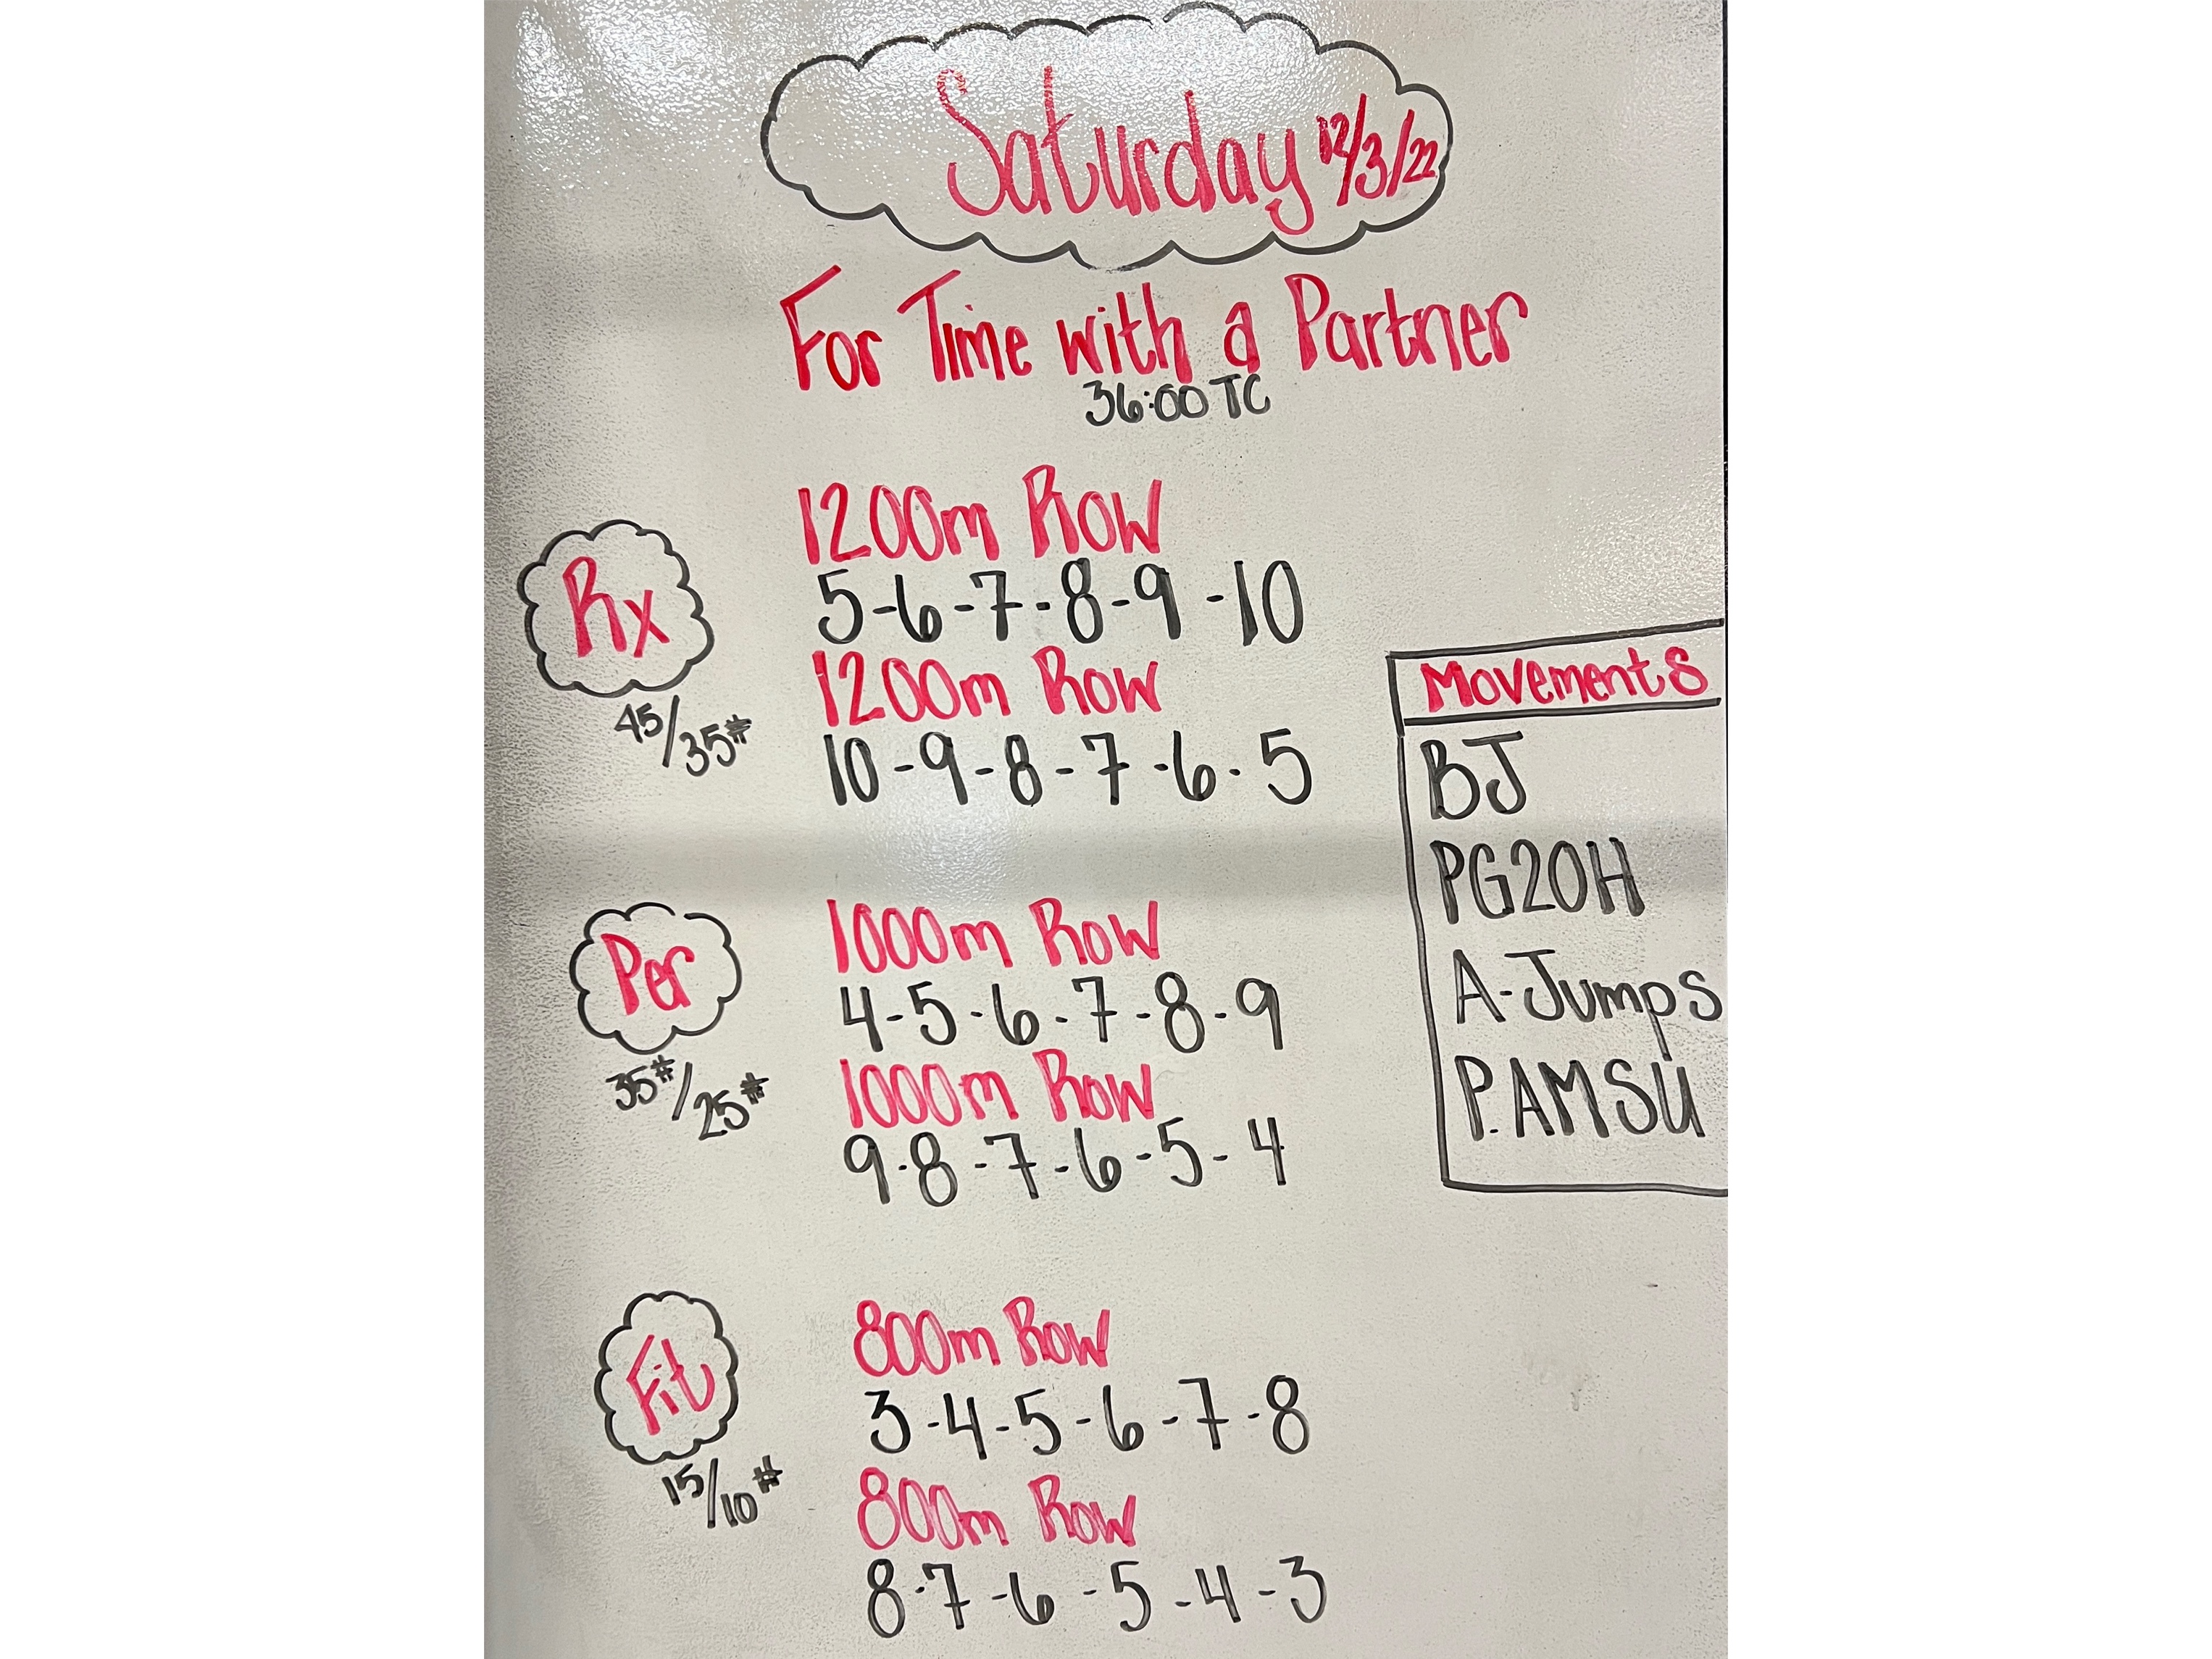 Saturday 12/3/22
For Time with a Partner
36:00 TC
Rx
45/35#
1200m Row
5-6-7-8-9-10
1200m Row
10-9-8-7-6-5
Movements
BJ
PG2OH
A-Jumps
P.AMSU
Per
35#/25#
1000m Row
4-5-6-7-8-9
1000m Row
9-8-7-6-5-4
Fit
15/10#
800m Row
3-4-5-6-7-8
800m Row
8-7-6-5-4-3